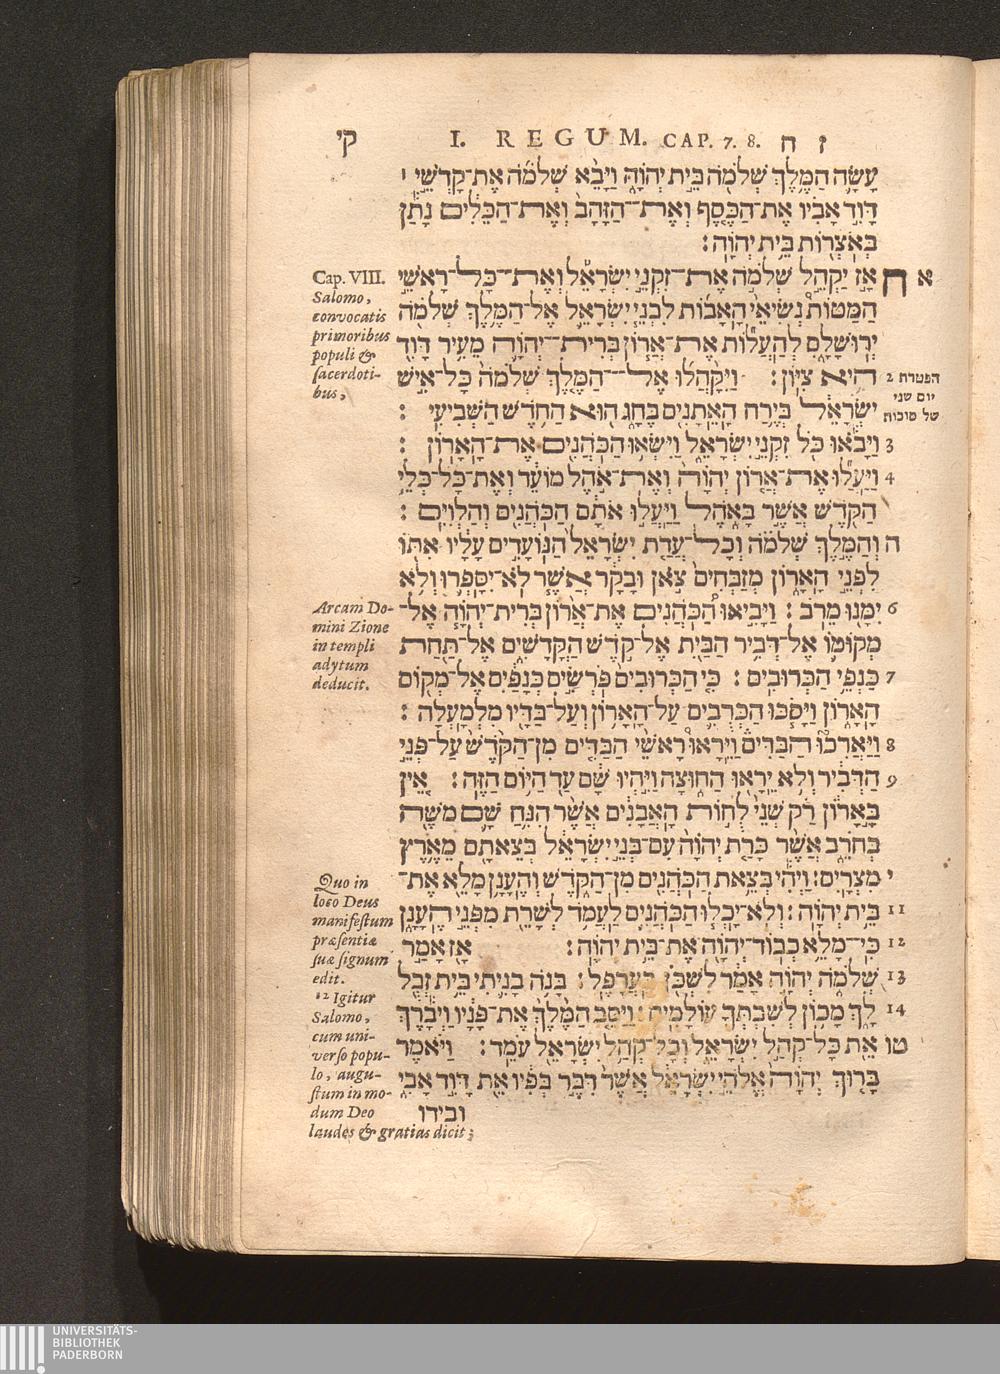 קי I. REGUM. CAP. 7. 8. ז ח
עָשָׂה הַמֶּלֶךְ שְׁלֹמֹה בֵּית יְהוָֹה וַיָּבֵא שְׁלֹמֹה אֶת־קָדְשֵׁי ו
דָּוִד אָבִיו אֶת־הַכֶּסֶף וְאֶת־הַזָּהָב וְאֶת־הַכֵּלִים נָתַן
בְּאֹצְרוֹת בֵּית יְהוָֹה׃
א ח אָז יַקְהֵל שְׁלֹמֹה אֶת־זִקְנֵי יִשְׂרָאֵל וְאֶת־כָּל־רָאשֵׁי
הַמַּטּוֹת נְשִׂיאֵי הָאָבוֹת לִבְנֵי יִשְׂרָאֵל אֶל־הַמֶּלֶךְ שְׁלֹמֹה
יְרוּשָׁלָםִ לְהַעֲלוֹת אֶת־אֲרוֹן בְּרִית־יְהוָֹה מֵעִיר דָּוִד
2 הִיא צִיּוֹן׃ וַיִּקָּהֲלוּ אֶל־הַמֶּלֶךְ שְׁלֹמֹה כָּל־אִישׁ
יִשְׂרָאֵל בְּיֶרַח הָאֵתָנִים בֶּחָג הוּא הַחֹדֶשׁ הַשְּׁבִיעִי׃
3 וַיָּבֹאוּ כֹּל זִקְנֵי יִשְׂרָאֵל וַיִּשְׂאוּ הַכֹּהֲנִים אֶת־הָאָרוֹן׃
4 וַיַּעֲלוּ אֶת־אֲרוֹן יְהוָֹה וְאֶת־אֹהֶל מוֹעֵד וְאֶת־כָּל־כְּלֵי
הַקֹּדֶשׁ אֲשֶׁר בָּאֹהֶל וַיַּעֲלוּ אֹתָם הַכֹּהֲנִים וְהַלְוִיִּם׃
ה וְהַמֶּלֶךְ שְׁלֹמֹה וְכָל־עֲדַת יִשְׂרָאֵל הַנּוֹעָדִים עָלָיו אִתּוֹ
לִפְנֵי הָאָרוֹן מְזַבְּחִים צֹאן וּבָקָר אֲשֶׁר לֹא־יִסָּפְרוּ וְלֹא
6 יִמָּנוּ מֵרֹב׃ וַיָּבִיאוּ הַכֹּהֲנִים אֶת־אֲרוֹן בְּרִית־יְהוָֹה אֶל־
מְקוֹמוֹ אֶל־דְּבִיר הַבַּיִת אֶל־קֹדֶשׁ הַקֳּדָשִׁים אֶל־תַּחַת
7 כַּנְפֵי הַכְּרוּבִים׃ כִּי הַכְּרוּבִים פֹּרְשִׂים כְּנָפַיִם אֶל־מְקוֹם
הָאָרוֹן וַיָּסֹכּוּ הַכְּרֻבִים עַל־הָאָרוֹן וְעַל־בַּדָּיו מִלְמָעְלָה׃
8 וַיַּאֲרִכוּ הַבַּדִּים וַיֵּרָאוּ רָאשֵׁי הַבַּדִּים מִן־הַקֹּדֶשׁ עַל־פְּנֵי
9 הַדְּבִיר וְלֹא יֵרָאוּ הַחוּצָה וַיִּהְיוּ שָׁם עַד הַיּוֹם הַזֶּה׃ אֵין
בָּאָרוֹן רַק שְׁנֵי לֻחוֹת הָאֲבָנִים אֲשֶׁר הִנִּחַ שָׁם מֹשֶׁה
בְּחֹרֵב אֲשֶׁר כָּרַת יְהוָֹה עִם־בְּנֵי יִשְׂרָאֵל בְּצֵאתָם מֵאֶרֶץ
י מִצְרָיִם׃ וַיְהִי בְּצֵאת הַכֹּהֲנִים מִן־הַקֹּדֶשׁ וְהֶעָנָן מָלֵא אֶת־
11 בֵּית יְהוָֹה׃ וְלֹא־יָכְלוּ הַכֹּהֲנִים לַעֲמֹד לְשָׁרֵת מִפְּנֵי הֶעָנָן
12 כִּי־מָלֵא כְבוֹד־יְהוָֹה אֶת־בֵּית יְהוָֹה׃ אָז אָמַר
13 שְׁלֹמֹה יְהוָֹה אָמַר לִשְׁכֹּן בָּעֲרָפֶל׃ בָּנֹה בָנִיתִי בֵּית זְבֻל
14 לָךְ מָכוֹן לְשִׁבְתְּךָ עוֹלָמִים׃ וַיַּסֵּב הַמֶּלֶךְ אֶת־פָּנָיו וַיְבָרֶךְ
טו אֵת כָּל־קְהַל יִשְׂרָאֵל וְכָל־קְהַל יִשְׂרָאֵל עֹמֵד׃ וַיֹּאמֶר
בָּרוּךְ יְהוָֹה אֱלֹהֵי יִשְׂרָאֵל אֲשֶׁר דִּבֶּר בְּפִיו אֵת דָּוִד אָבִי
ובידו
הפטרת
יום שני
של סוכות
Cap. VIII.
Salomo,
convocatis
primoribus
populi &
sacerdoti-
bus,
Arcam Do-
mini Zione
in templi
adytum
deducit.
Quo in
loco Deus
manifestum
præsentiæ
suæ signum
edit.
12 Igitur
Salomo,
cum uni-
verso popu-
lo, augu-
stum in mo-
dum Deo
laudes & gratias dicit;
UNIVERSITÄTS-
BIBLIOTHEK
PADERBORN